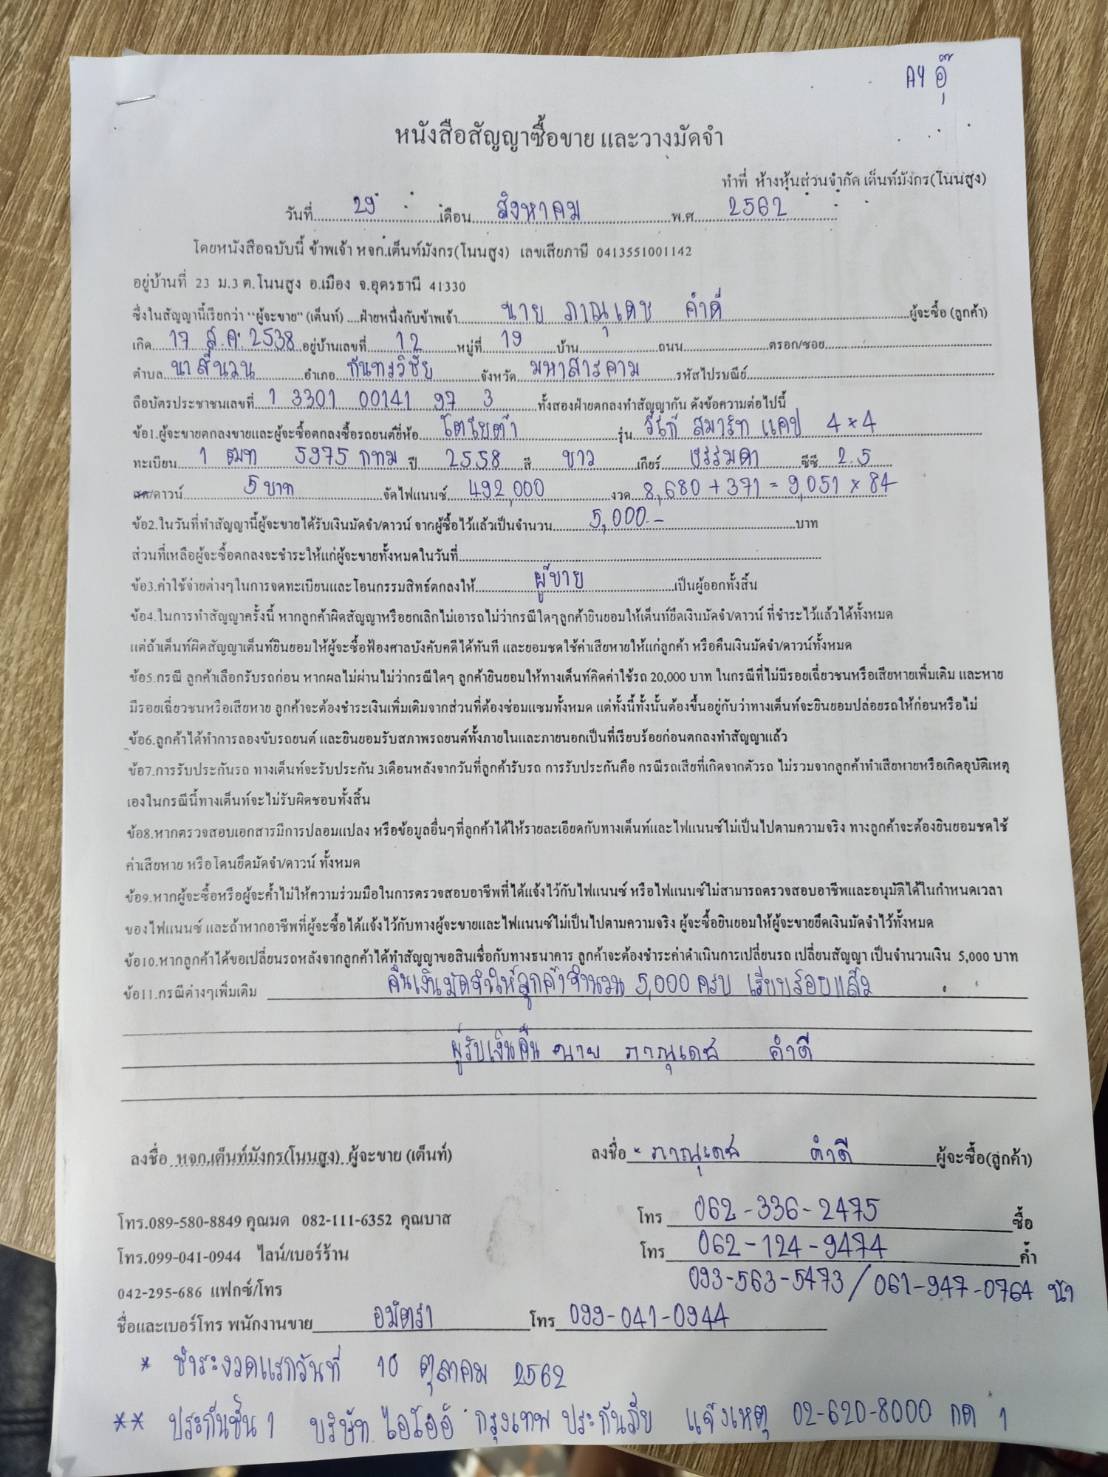 AY อุ๊
หนังสือสัญญาซื้อขาย และวางมัดจำ
ทำที่ ห้างหุ้นส่วนจำกัด เต็นท์มังกร(โนนสูง)
วันที่ 29 เดือน สิงหาคม พ.ศ 2562
โดยหนังสือฉบับนี้ ข้าพเจ้า หจก.เต็นท์มังกร(โนนสูง) เลขเสียภาษี 0413551001142
อยู่บ้านที่ 23 ม.3 ต.โนนสูง อ.เมือง จ.อุดรธานี 41330
ซึ่งในสัญญานี้เรียกว่า "ผู้จะขาย" (เต็นท์) ....ฝ่ายหนึ่งกับข้าพเจ้า นาย ภาณุเดช คำดี ผู้จะซื้อ (ลูกค้า)
เกิด 17 ส.ค. 2538 อยู่บ้านเลขที่ 12 หมู่ที่ 19 บ้าน ถนน ตรอก/ซอย
ตำบล นาสีนวน อำเภอ กันทรวิชัย จังหวัด มหาสารคาม รหัสไปรษณีย์
ถือบัตรประชาชนเลขที่ 1 3301 00141 97 3 ทั้งสองฝ่ายตกลงทำสัญญากัน ดังข้อความต่อไปนี้
ข้อ1.ผู้จะขายตกลงขายและผู้จะซื้อตกลงซื้อรถยนต์ยี่ห้อ โตโยต้า รุ่น วีโก้ สมาร์ท แคป 4×4
ทะเบียน 1 ฒท 5975 กทม ปี 2558 สี ขาว เกียร์ ธรรมดา ซีซี 2.5
สด/ดาวน์ 5 บาท จัดไฟแนนซ์ 492,000 งวด 8,680 + 371 = 9,051 × 84
ข้อ2.ในวันที่ทำสัญญานี้ผู้จะขายได้รับเงินมัดจำ/ดาวน์ จากผู้ซื้อไว้แล้วเป็นจำนวน 5,000.- บาท
ส่วนที่เหลือผู้จะซื้อตกลงจะชำระให้แก่ผู้จะขายทั้งหมดในวันที่
ข้อ3.ค่าใช้จ่ายต่างๆในการจดทะเบียนและโอนกรรมสิทธ์ตกลงให้ ผู้ขาย เป็นผู้ออกทั้งสิ้น
ข้อ4.ในการทำสัญญาครั้งนี้ หากลูกค้าผิดสัญญาหรือยกเลิกไม่เอารถไม่ว่ากรณีใดๆลูกค้ายินยอมให้เต็นท์ยึดเงินมัดจำ/ดาวน์ ที่ชำระไว้แล้วได้ทั้งหมด
แต่ถ้าเต็นท์ผิดสัญญาเต็นท์ยินยอมให้ผู้จะซื้อฟ้องศาลบังคับคดีได้ทันที และยอมชดใช้ค่าเสียหายให้แก่ลูกค้า หรือคืนเงินมัดจำ/ดาวน์ทั้งหมด
ข้อ5.กรณี ลูกค้าเลือกรับรถก่อน หากผลไม่ผ่านไม่ว่ากรณีใดๆ ลูกค้ายินยอมให้ทางเต็นท์คิดค่าใช้รถ 20,000 บาท ในกรณีที่ไม่มีรอยเฉี่ยวชนหรือเสียหายเพิ่มเติม และหาย
มีรอยเฉี่ยวชนหรือเสียหาย ลูกค้าจะต้องชำระเงินเพิ่มเติมจากส่วนที่ต้องซ่อมแซมทั้งหมด แต่ทั้งนี้ทั้งนั้นต้องขึ้นอยู่กับว่าทางเต็นท์จะยินยอมปล่อยรถให้ก่อนหรือไม่
ข้อ6.ลูกค้าได้ทำการลองขับรถยนต์ และยินยอมรับสภาพรถยนต์ทั้งภายในและภายนอกเป็นที่เรียบร้อยก่อนตกลงทำสัญญาแล้ว
ข้อ7.การรับประกันรถ ทางเต็นท์จะรับประกัน 3เดือนหลังจากวันที่ลูกค้ารับรถ การรับประกันคือ กรณีรถเสียที่เกิดจากตัวรถ ไม่รวมจากลูกค้าทำเสียหายหรือเกิดอุบัติเหตุ
เองในกรณีนี้ทางเต็นท์จะไม่รับผิดชอบทั้งสิ้น
ข้อ8.หากตรวจสอบเอกสารมีการปลอมแปลง หรือข้อมูลอื่นๆที่ลูกค้าได้ให้รายละเอียดกับทางเต็นท์และไฟแนนซ์ไม่เป็นไปตามความจริง ทางลูกค้าจะต้องยินยอมชดใช้
ค่าเสียหาย หรือโดนยึดมัดจำ/ดาวน์ ทั้งหมด
ข้อ9.หากผู้จะซื้อหรือผู้จะค้ำไม่ให้ความร่วมมือในการตรวจสอบอาชีพที่ได้แจ้งไว้กับไฟแนนซ์ หรือไฟแนนซ์ไม่สามารถตรวจสอบอาชีพและอนุมัติได้ในกำหนดเวลา
ของไฟแนนซ์ และถ้าหากอาชีพที่ผู้จะซื้อได้แจ้งไว้กับทางผู้จะขายและไฟแนนซ์ไม่เป็นไปตามความจริง ผู้จะซื้อยินยอมให้ผู้จะขายยึดเงินมัดจำไว้ทั้งหมด
ข้อ10.หากลูกค้าได้ขอเปลี่ยนรถหลังจากลูกค้าได้ทำสัญญาขอสินเชื่อกับทางธนาคาร ลูกค้าจะต้องชำระค่าดำเนินการเปลี่ยนรถ เปลี่ยนสัญญา เป็นจำนวนเงิน 5,000 บาท
ข้อ11.กรณีต่างๆเพิ่มเติม คืนเงินมัดจำให้ลูกค้าจำนวน 5,000 ครบ เรียบร้อยแล้ว
ผู้รับเงินคืน นาย ภาณุเดช คำดี
ลงชื่อ หจก.เต็นท์มังกร(โนนสูง) ผู้จะขาย (เต็นท์) ลงชื่อ ภาณุเดช คำดี ผู้จะซื้อ(ลูกค้า)
โทร.089-580-8849 คุณมด 082-111-6352 คุณบาส โทร 062-336-2475 ซื้อ
โทร.099-041-0944 ไลน์/เบอร์ร้าน โทร 062-124-9474 ค้ำ
042-295-686 แฟกซ์/โทร 093-563-5473 / 061-947-0764 น้า
ชื่อและเบอร์โทร พนักงานขาย อมิตรา โทร 099-041-0944
* ชำระงวดแรกวันที่ 10 ตุลาคม 2562
** ประกันชั้น 1 บริษัท ไอโออิ กรุงเทพ ประกันภัย แจ้งเหตุ 02-620-8000 กด 1